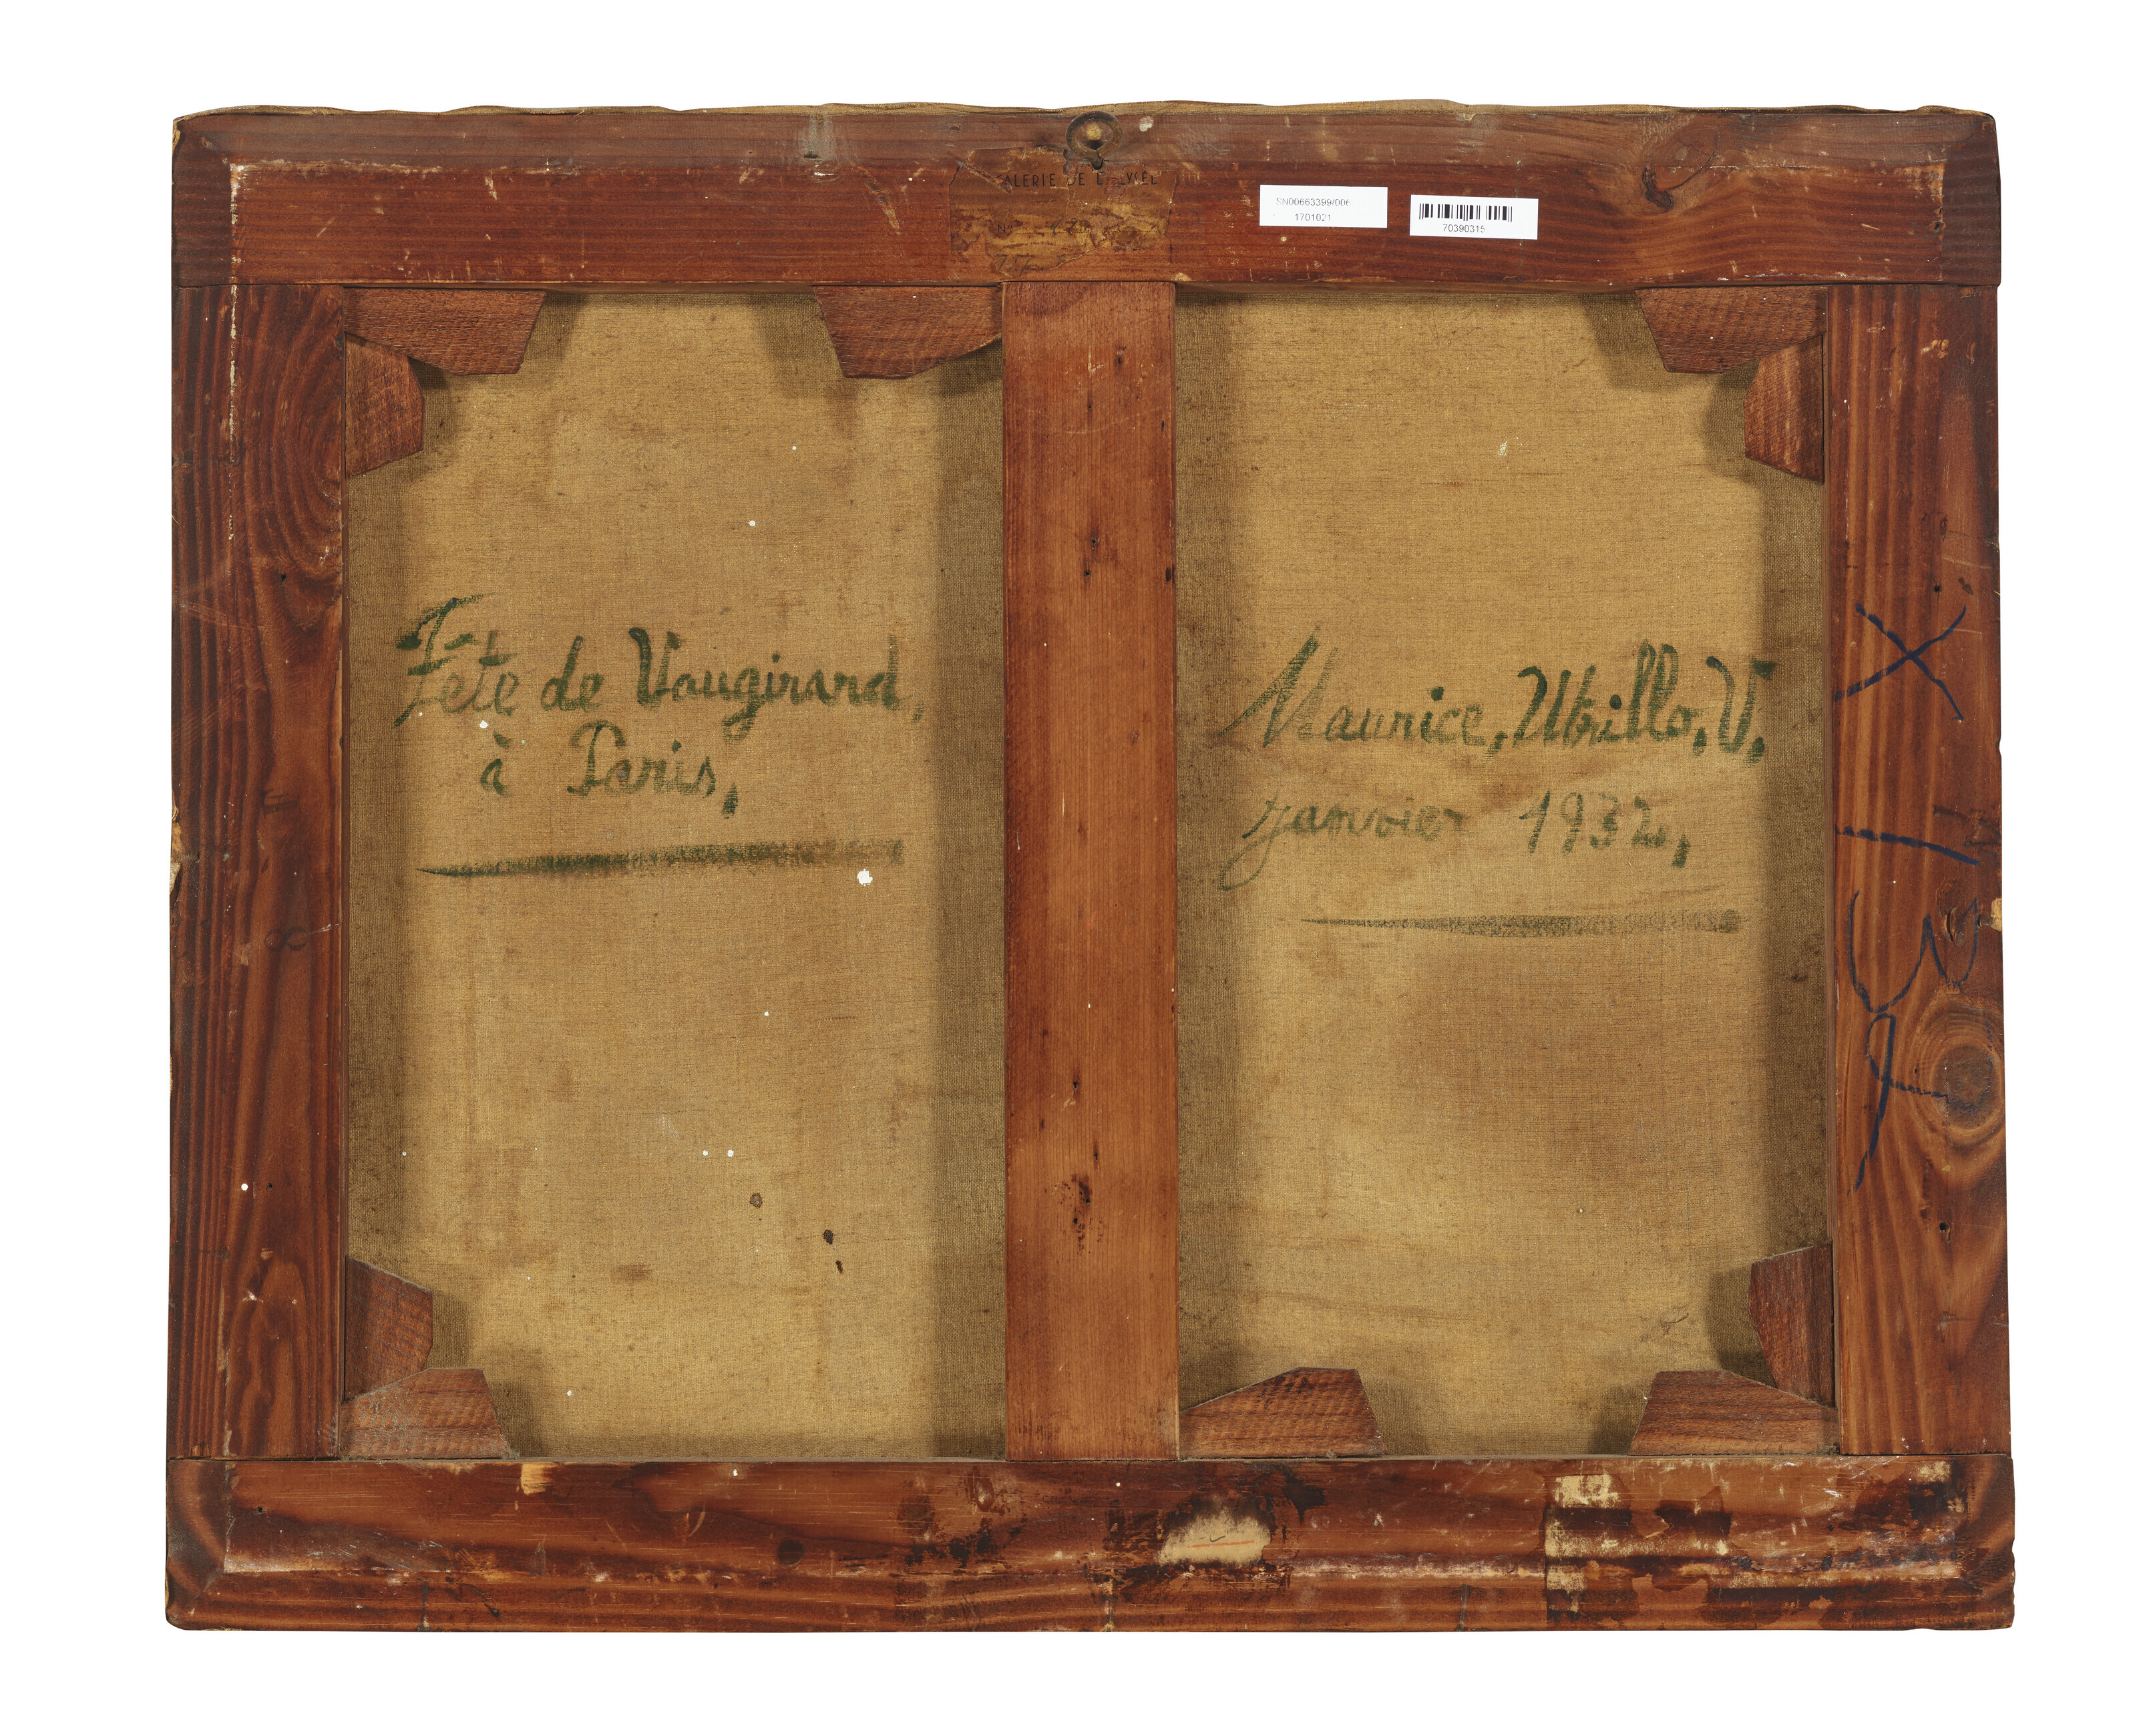 GALERIE DE L'ELYSÉE
SN00663399/006
1701021
70390315
Fête de Vaugirard,
à Paris,
Maurice, Utrillo, V.
janvier 1932,
8